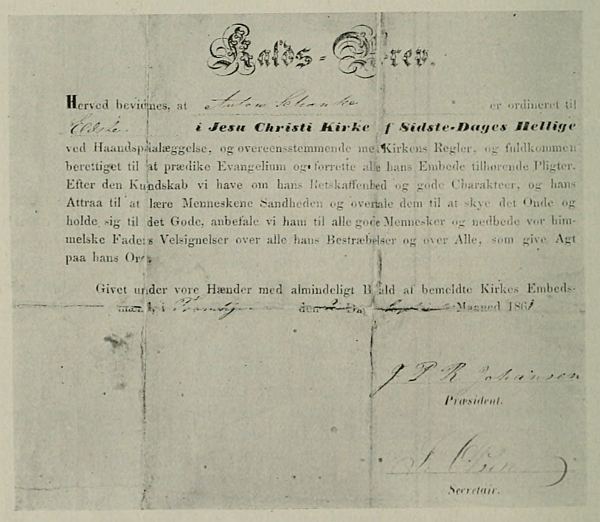 Kalds-Brev.
Herved bevidnes, at Anton Schanke er ordineret til
Eldste i Jesu Christi Kirke f Sidste-Dages Hellige
ved Haandspaalæggelse, og overeensstemmende me Kirkens Regler, og fuldkommen
berettiget til at prædike Evangelium og forrette alle hans Embede tilhørende Pligter.
Efter den Kundskab vi have om hans Retskaffenhed og gode Charakteer, og hans
Attraa til at lære Menneskene Sandheden og overtale dem til at skye det Onde og
holde sig til det Gode, anbefale vi ham til alle gode Mennesker og nedbede vor him-
melske Faders Velsignelser over alle hans Bestræbelser og over Alle, som give Agt
paa hans Ord.
Givet under vore Hænder med almindeligt B ald af bemeldte Kirkes Embeds-
i den Maaned 186
J P R Johansen
Præsident.
Olsen
Secretair.